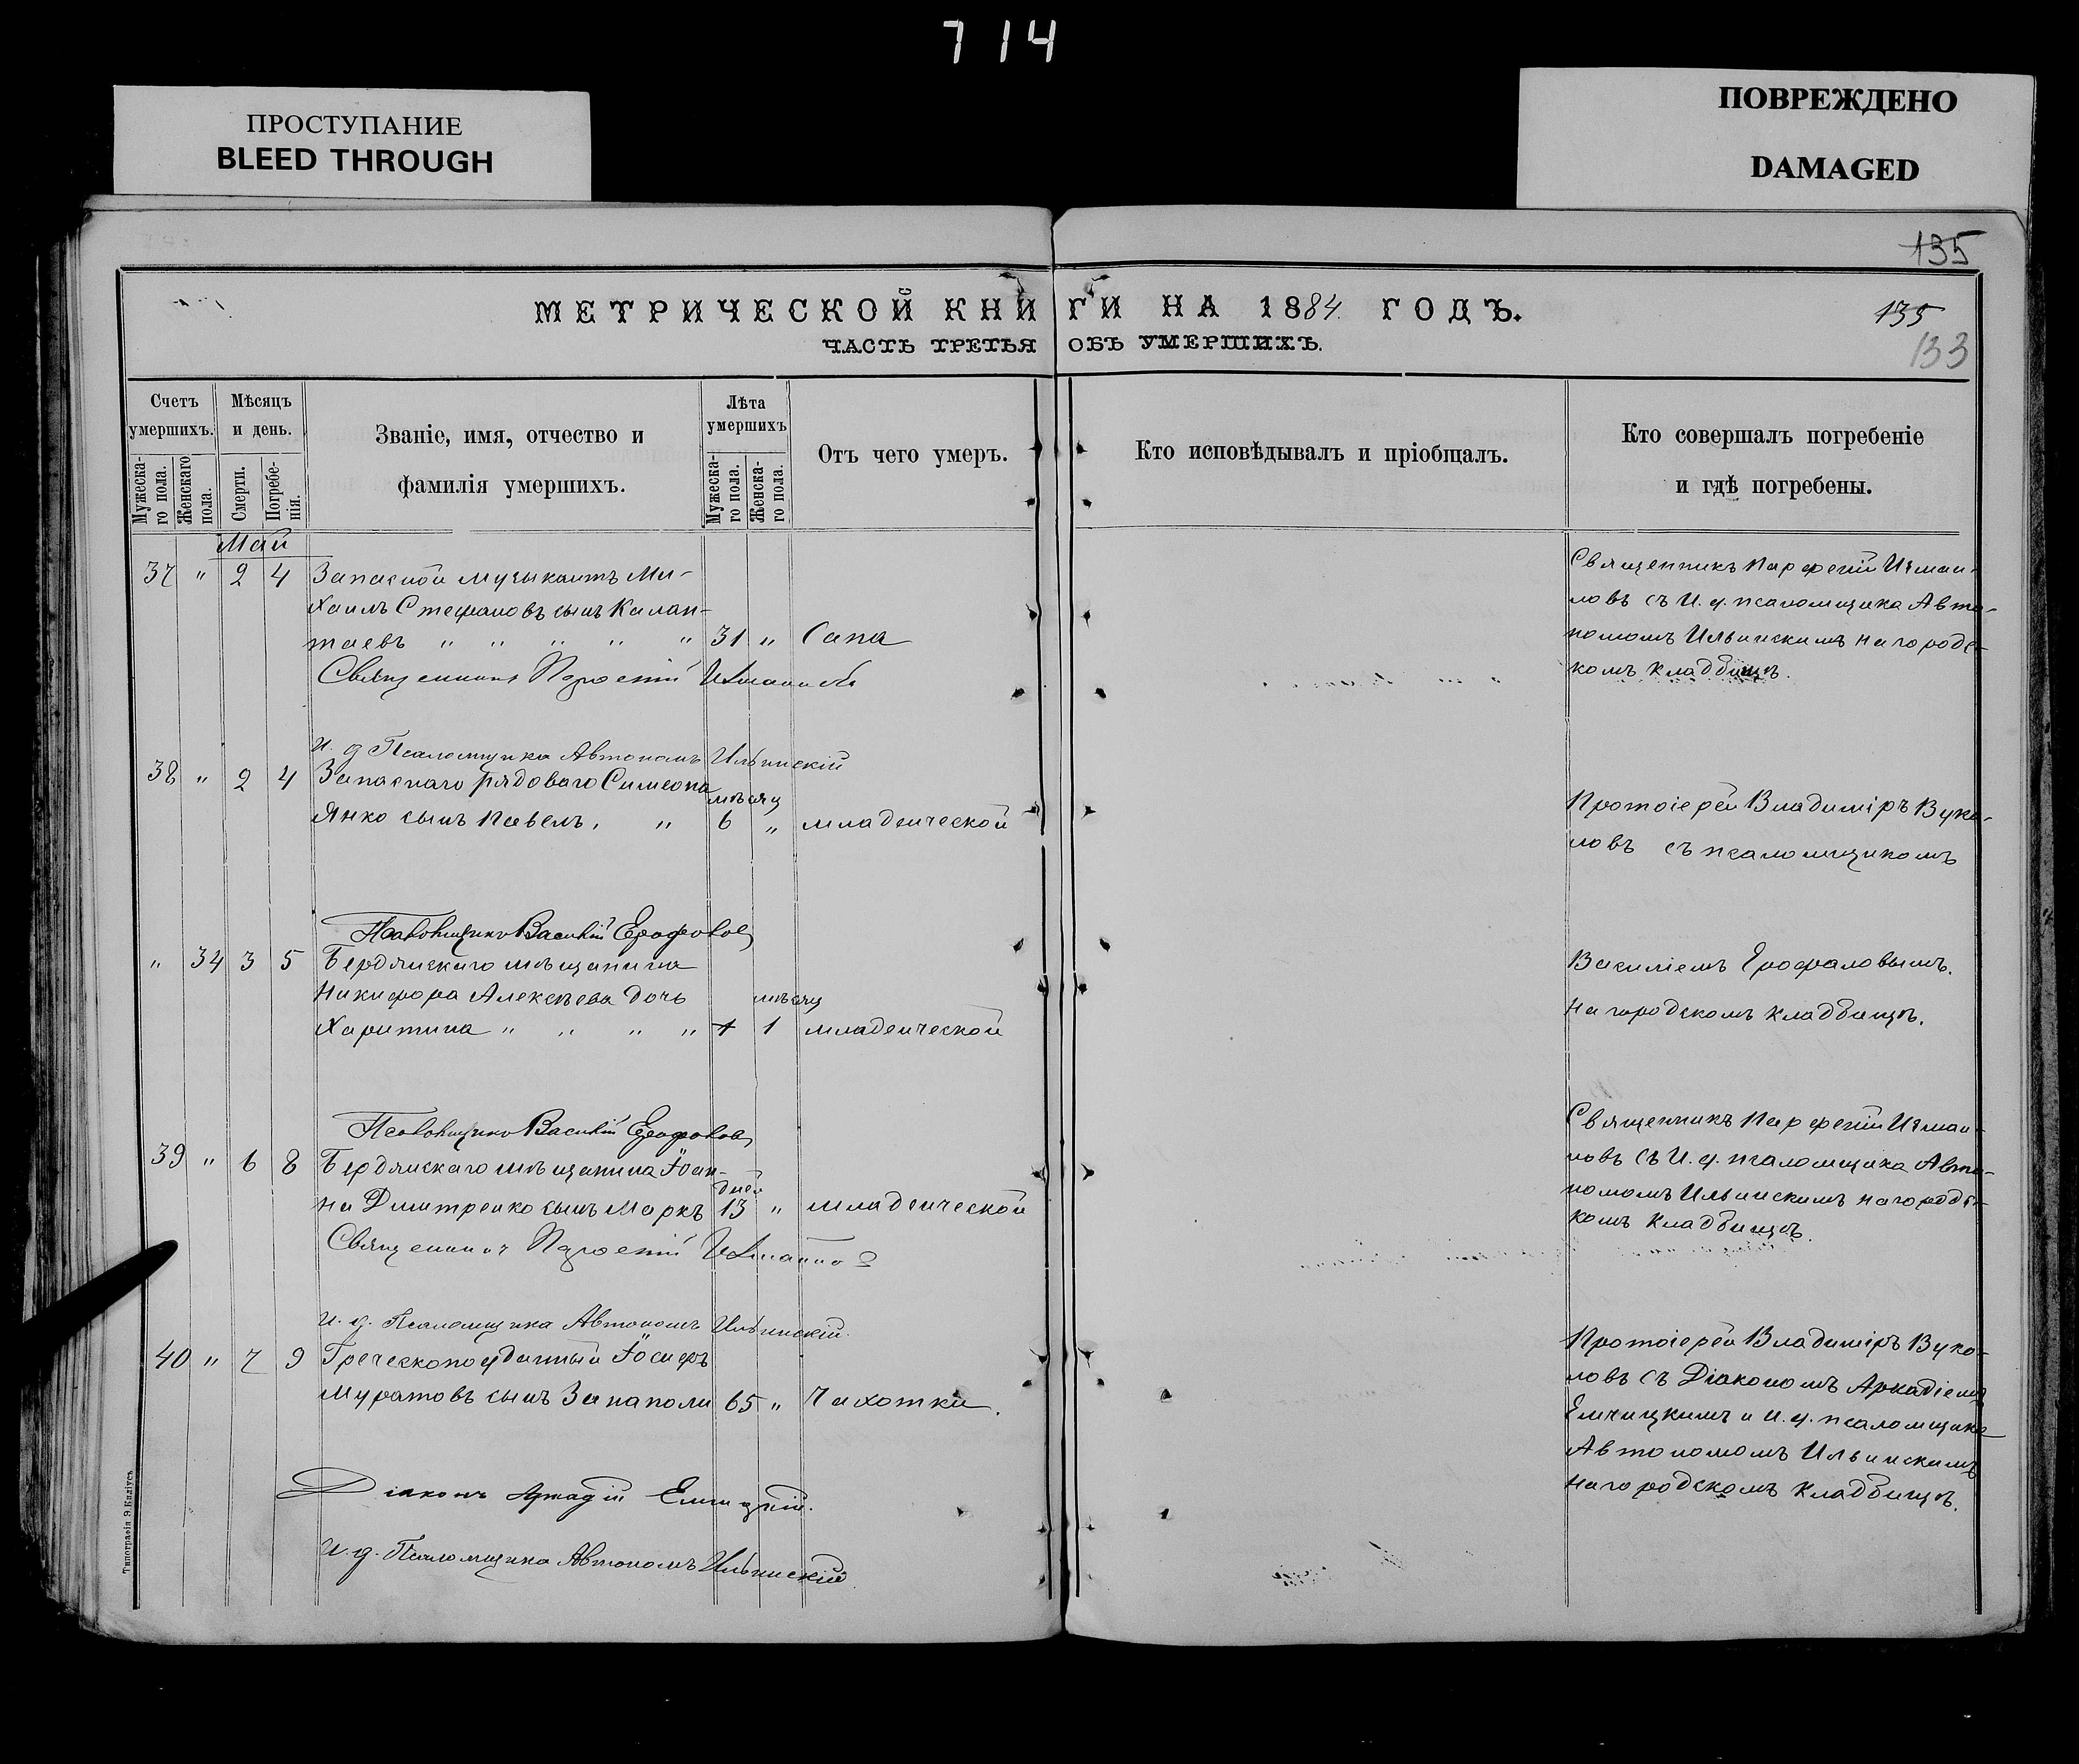 714
ПРОСТУПАНИЕ
BLEED THROUGH
ПОВРЕЖДЕНО
DAMAGED
135
МЕТРИЧЕСКОЙ КНИГИ НА 1884 ГОДЪ.
135
ЧАСТЬ ТРЕТЬЯ ОБЪ УМЕРШИХЪ.
133
Счетъ умершихъ.
Мужескаго пола.
Женскаго пола.
Мѣсяцъ и день.
Смерти.
Погребенія.
Званіе, имя, отчество и
фамилія умершихъ.
Лѣта умершихъ
Мужескаго пола.
Женскаго пола.
Отъ чего умеръ.
Кто исповѣдывалъ и пріобщалъ.
Кто совершалъ погребеніе
и гдѣ погребены.
Май
37 " 2 4 Запасной музыкантъ Ми-
хаилъ Стефановъ сынъ Калан-
таевъ " " " " " 31 " Сапа
Священникъ Парѳеній Измаиловъ
Священникъ Парфеній Измаи-
ловъ съ И. д. псаломщика Авто-
номомъ Ильинскимъ на городс-
комъ кладбищѣ.
И. д. Псаломщика Автономъ Ильинскій
38 " 2 4 Запаснаго рядоваго Симеона
мѣсяц
Янко сынъ Павелъ, " 6 " младенческой
Протоіерей Владиміръ Буко-
ловъ съ псаломщикомъ
Псаломщикъ Василій Ерофаловъ
" 34 3 5 Бердянскаго мѣщанина
Никифора Алексѣева дочь мѣсяц
Харитина " " " " 1 1 младенческой
Василіемъ Ерофаловымъ.
На городскомъ кладбищѣ.
Псаломщикъ Василій Ерофаловъ
39 " 6 8 Бердянскаго мѣщанина Іоан-
дней
на Дмитренко сынъ Маркъ 13 " младенческой
Священникъ Парѳеній Измаиловъ
Священникъ Парфеній Измаи-
ловъ съ И. д. псаломщика Авто-
номомъ Ильинскимъ на городс-
комъ кладбищѣ.
И. д. Псаломщика Автономъ Ильинскій.
40 " 7 9 Греческоподданный Іосифъ
Муратовъ сынъ Занаполи 65 " Чахотки.
Протоіерей Владиміръ Буко-
ловъ съ Діакономъ Аркадіемъ
Емчицкимъ и И. д. псаломщика
Автономомъ Ильинскимъ
На городскомъ кладбищѣ.
Діаконъ Аркадій Емчицкій.
И. д. Псаломщика Автономъ Ильинскій